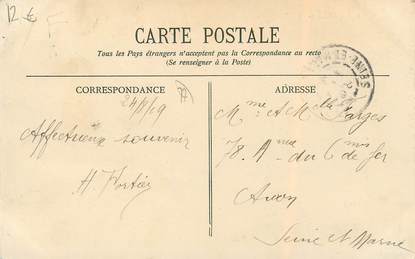 12 €
F
CARTE POSTALE
Tous les Pays étrangers n'acceptent pas la Correspondance au recto
(Se renseigner à la Poste)
CORRESPONDANCE
Affectueux souvenir
H.
ADRESSE
Mme et Melle Farges
78. Ame du Cmis de fer
Avon
Seine et Marne
SEINE-ET-M